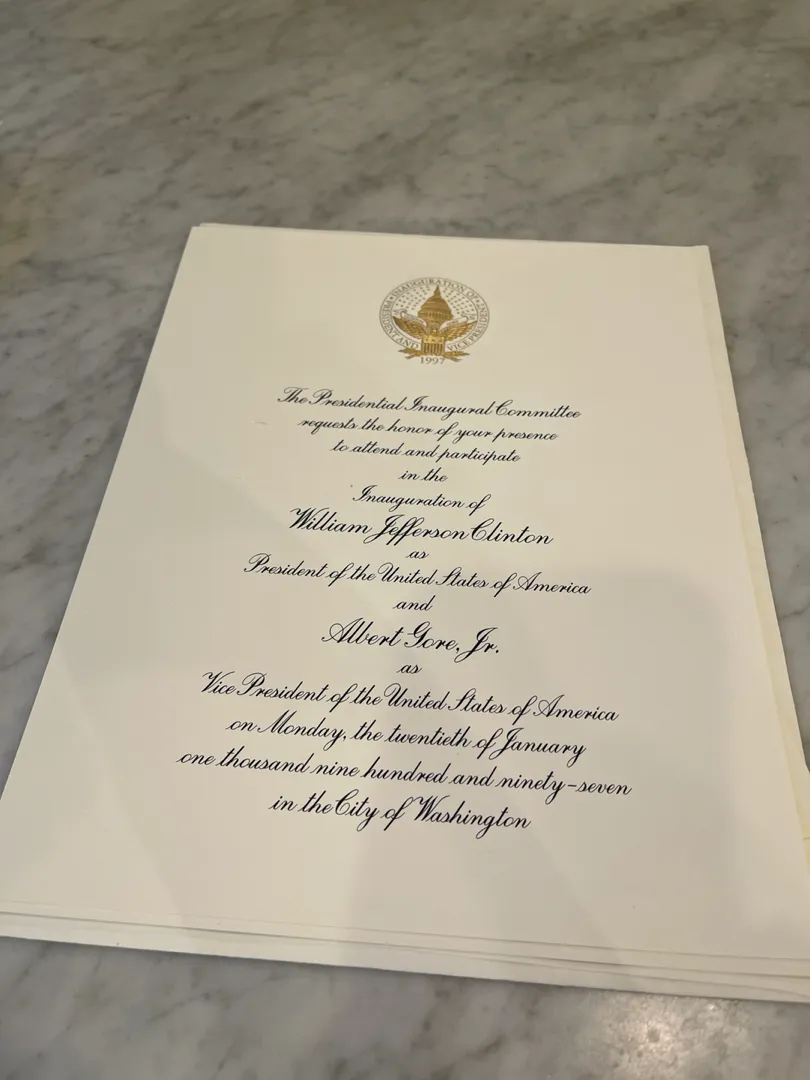 INAUGURATION OF
PRESIDENT AND VICE PRESIDENT
1997
The Presidential Inaugural Committee
requests the honor of your presence
to attend and participate
in the
Inauguration of
William Jefferson Clinton
as
President of the United States of America
and
Albert Gore, Jr.
as
Vice President of the United States of America
on Monday, the twentieth of January
one thousand nine hundred and ninety-seven
in the City of Washington